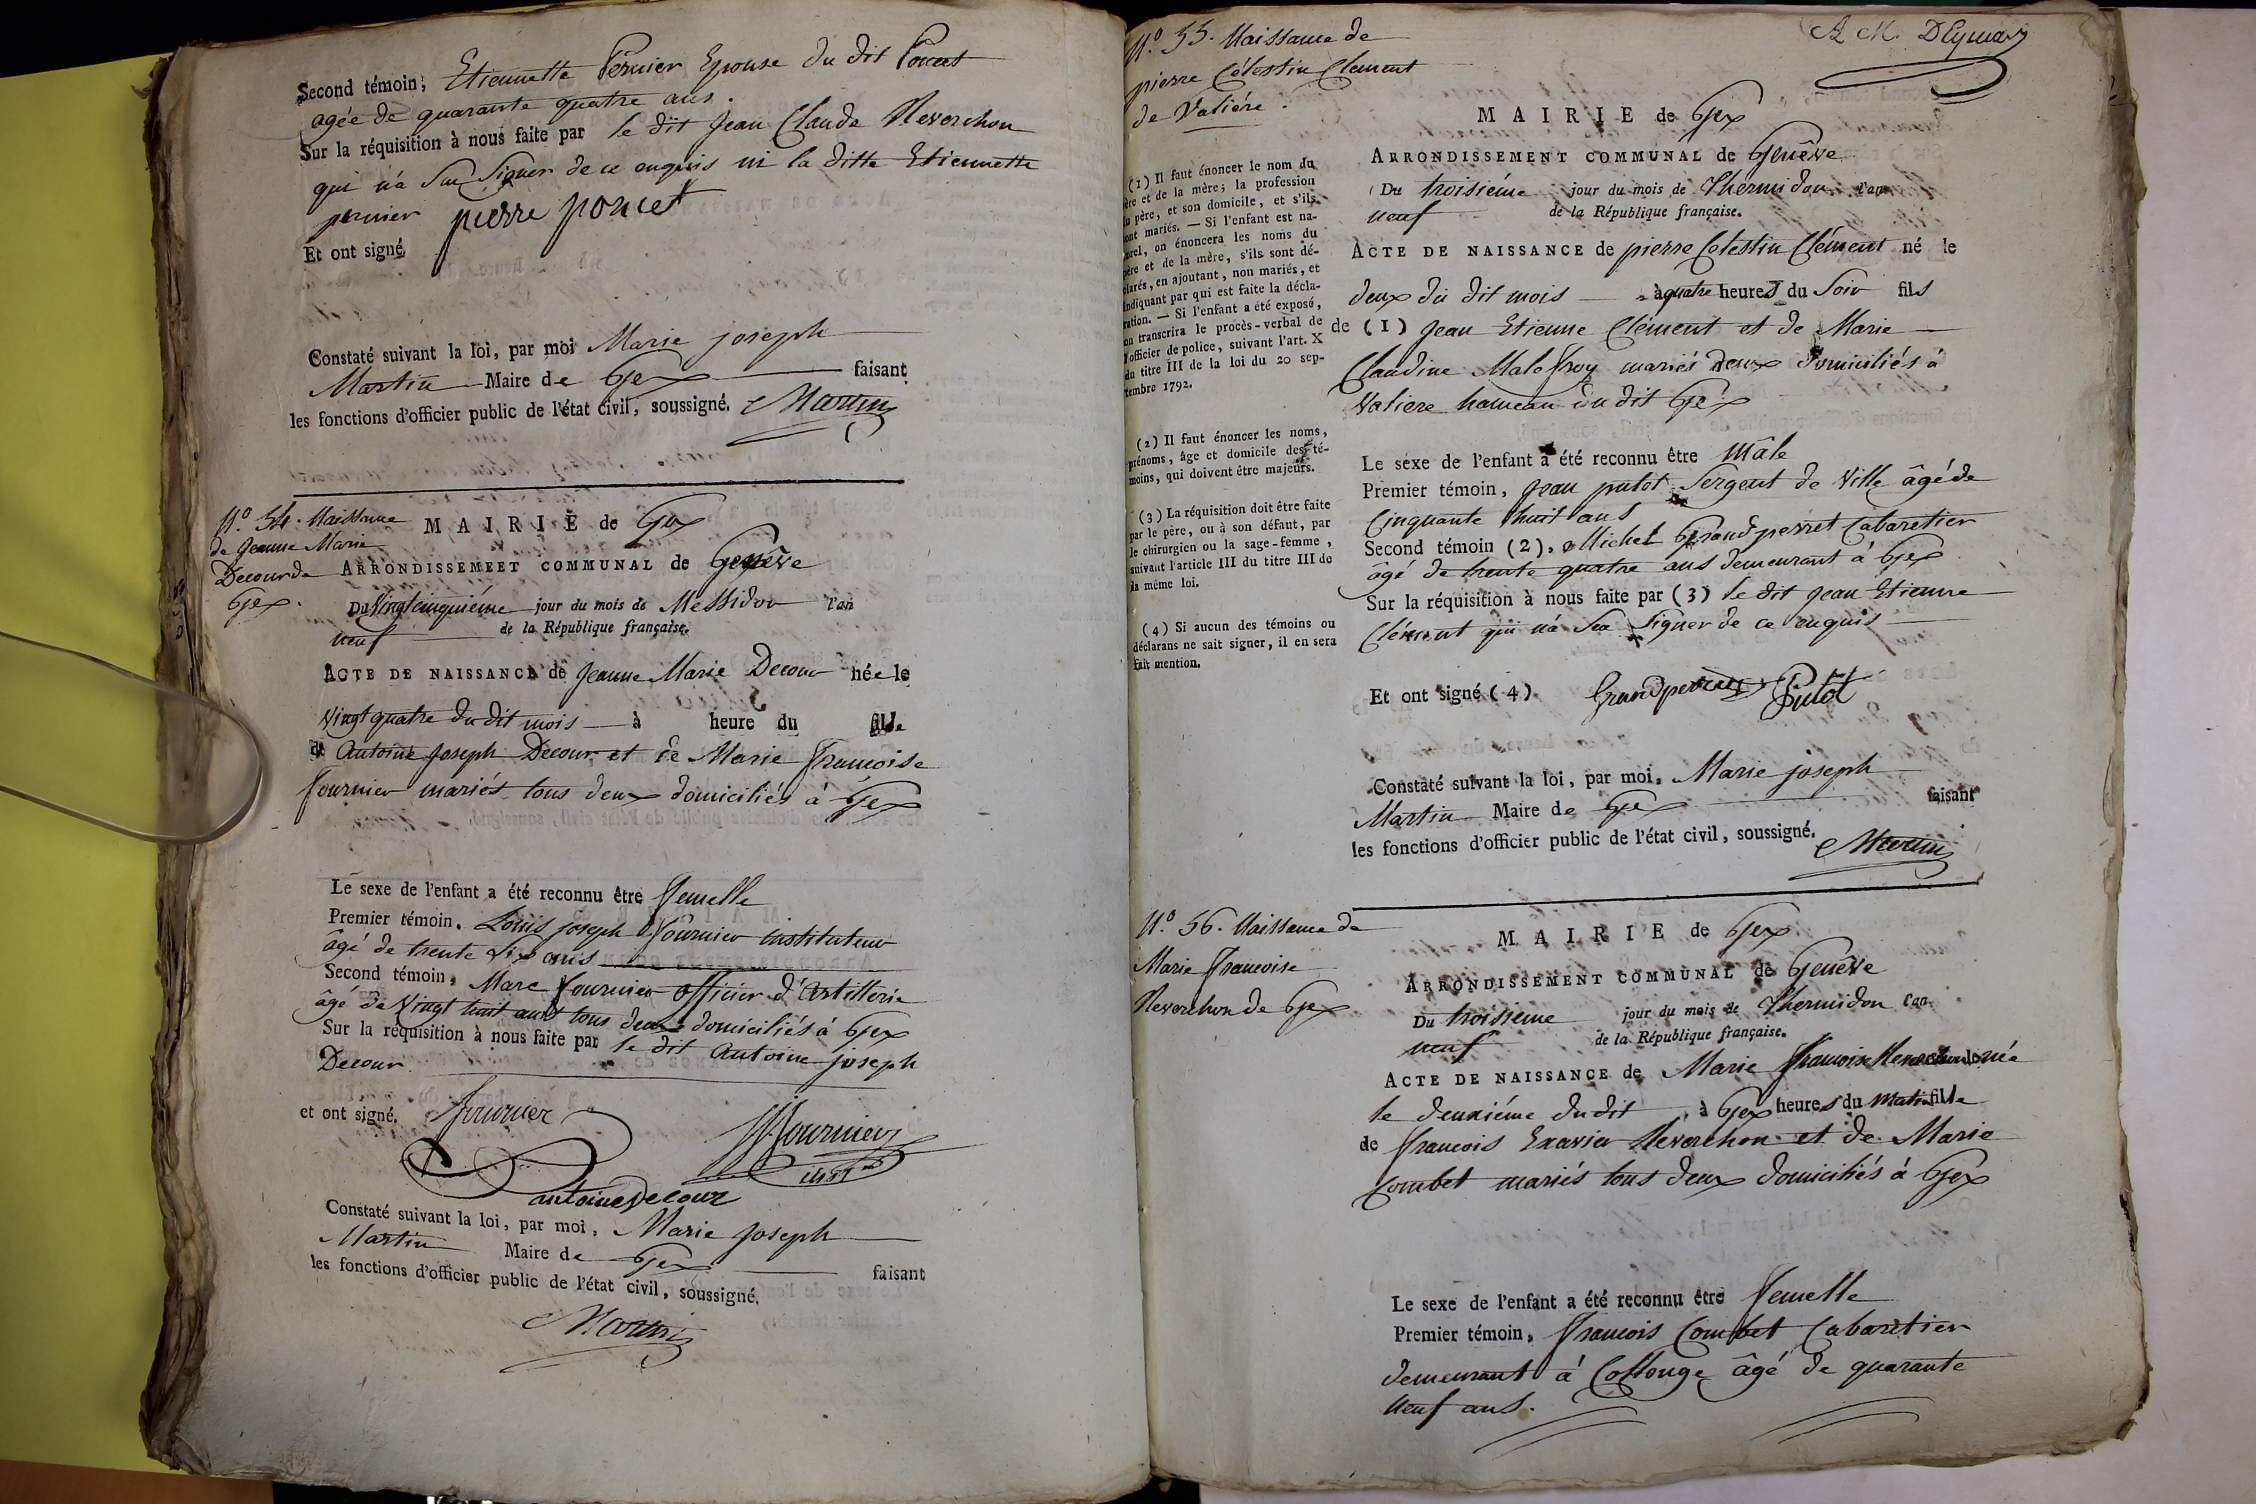 Second témoin, Etiennette Pernier Epouse du dit Poncet
agée de quarante quatre ans.
Sur la réquisition à nous faite par le dit Jean Claude Reverchon
qui n'a Su Signer de ce enquis ni la ditte Etiennette
pernier pierre poncet
Et ont signé
Constaté suivant la loi, par moi Marie joseph
Martin Maire de Gex faisant
les fonctions d'officier public de l'état civil, soussigné. Martin
N.º 54. Naissance
de Jeanne Marie
Decour de
Gex.
MAIRIE de Gex
ARRONDISSEMEET COMMUNAL de Genêve
Du Vingt cinquiéme jour du mois de Messidor l'an
neuf de la République française.
ACTE DE NAISSANCE de Jeanne Marie Decour née le
Vingt quatre du dit mois à heure du fille
de Antoine Joseph Decour et de Marie françoise
fournier mariés tous deux domiciliés à Gex
Le sexe de l'enfant a été reconnu être femelle
Premier témoin, Louis joseph fournier instituteur
âgé de trente Six ans
Second témoin, Marc fournier officier d'Artillerie
âgé de Vingt huit ans tous deux domiciliés à Gex
Sur la réquisition à nous faite par le dit Antoine joseph
Decour
et ont signé. fournier
fournier
antoine Decour
Constaté suivant la loi, par moi, Marie joseph
Martin Maire de Gex faisant
les fonctions d'officier public de l'état civil, soussigné.
Martin
N.º 55. Naissance de
pierre Célestin Clement
de Valiére.
(1) Il faut énoncer le nom du
père et de la mère; la profession
du père, et son domicile, et s'ils
sont mariés. — Si l'enfant est na-
turel, on énoncera les noms du
père et de la mère, s'ils sont dé-
clarés, en ajoutant, non mariés, et
indiquant par qui est faite la décla-
ration. — Si l'enfant a été exposé,
on transcrira le procès-verbal de
l'officier de police, suivant l'art. X
du titre III de la loi du 20 sep-
tembre 1792.
(2) Il faut énoncer les noms,
prénoms, âge et domicile des té-
moins, qui doivent être majeurs.
(3) La réquisition doit être faite
par le père, ou à son défaut, par
le chirurgien ou la sage-femme,
suivant l'article III du titre III de
la même loi.
(4) Si aucun des témoins ou
déclarans ne sait signer, il en sera
fait mention.
MAIRIE de Gex
ARRONDISSEMENT COMMUNAL de Genêve
Du troisiéme jour du mois de Thermidor l'an
neuf de la République française.
ACTE DE NAISSANCE de pierre Celestin Clément né le
deux du dit mois à quatre heures du Soir fils
de (1) Jean Etienne Clément et de Marie
Claudine Malefroy mariés deux domiciliés à
Valiere hameau du dit Gex
Le sexe de l'enfant a été reconnu être Mâle
Premier témoin, Jean putot Sergent de Ville âgé de
Cinquante huit ans
Second témoin (2), Michel Grandperret Cabaretier
âgé de trente quatre ans demeurant à Gex
Sur la réquisition à nous faite par (3) le dit Jean Étienne
Clément qui n'a Su Signer de ce enquis
Et ont signé (4) Grandperret Putot
Constaté suivant la loi, par moi, Marie joseph
Martin Maire de Gex faisant
les fonctions d'officier public de l'état civil, soussigné.
Martin
N.º 56. Naissance de
Marie françoise
Reverchon de Gex
MAIRIE de Gex
ARRONDISSEMENT COMMUNAL de Genêve
Du troisieme jour du mois de Thermidor l'an
neuf de la République française.
ACTE DE NAISSANCE de Marie françoise Reverchon née
le deuxiéme du dit à Gex heures du matin fille
de françois Exavier Reverchon et de Marie
Combet mariés tous deux domiciliés à Gex
Le sexe de l'enfant a été reconnu être femelle
Premier témoin, françois Combet Cabaretier
demeurant à Collonge âgé de quarante
neuf ans.